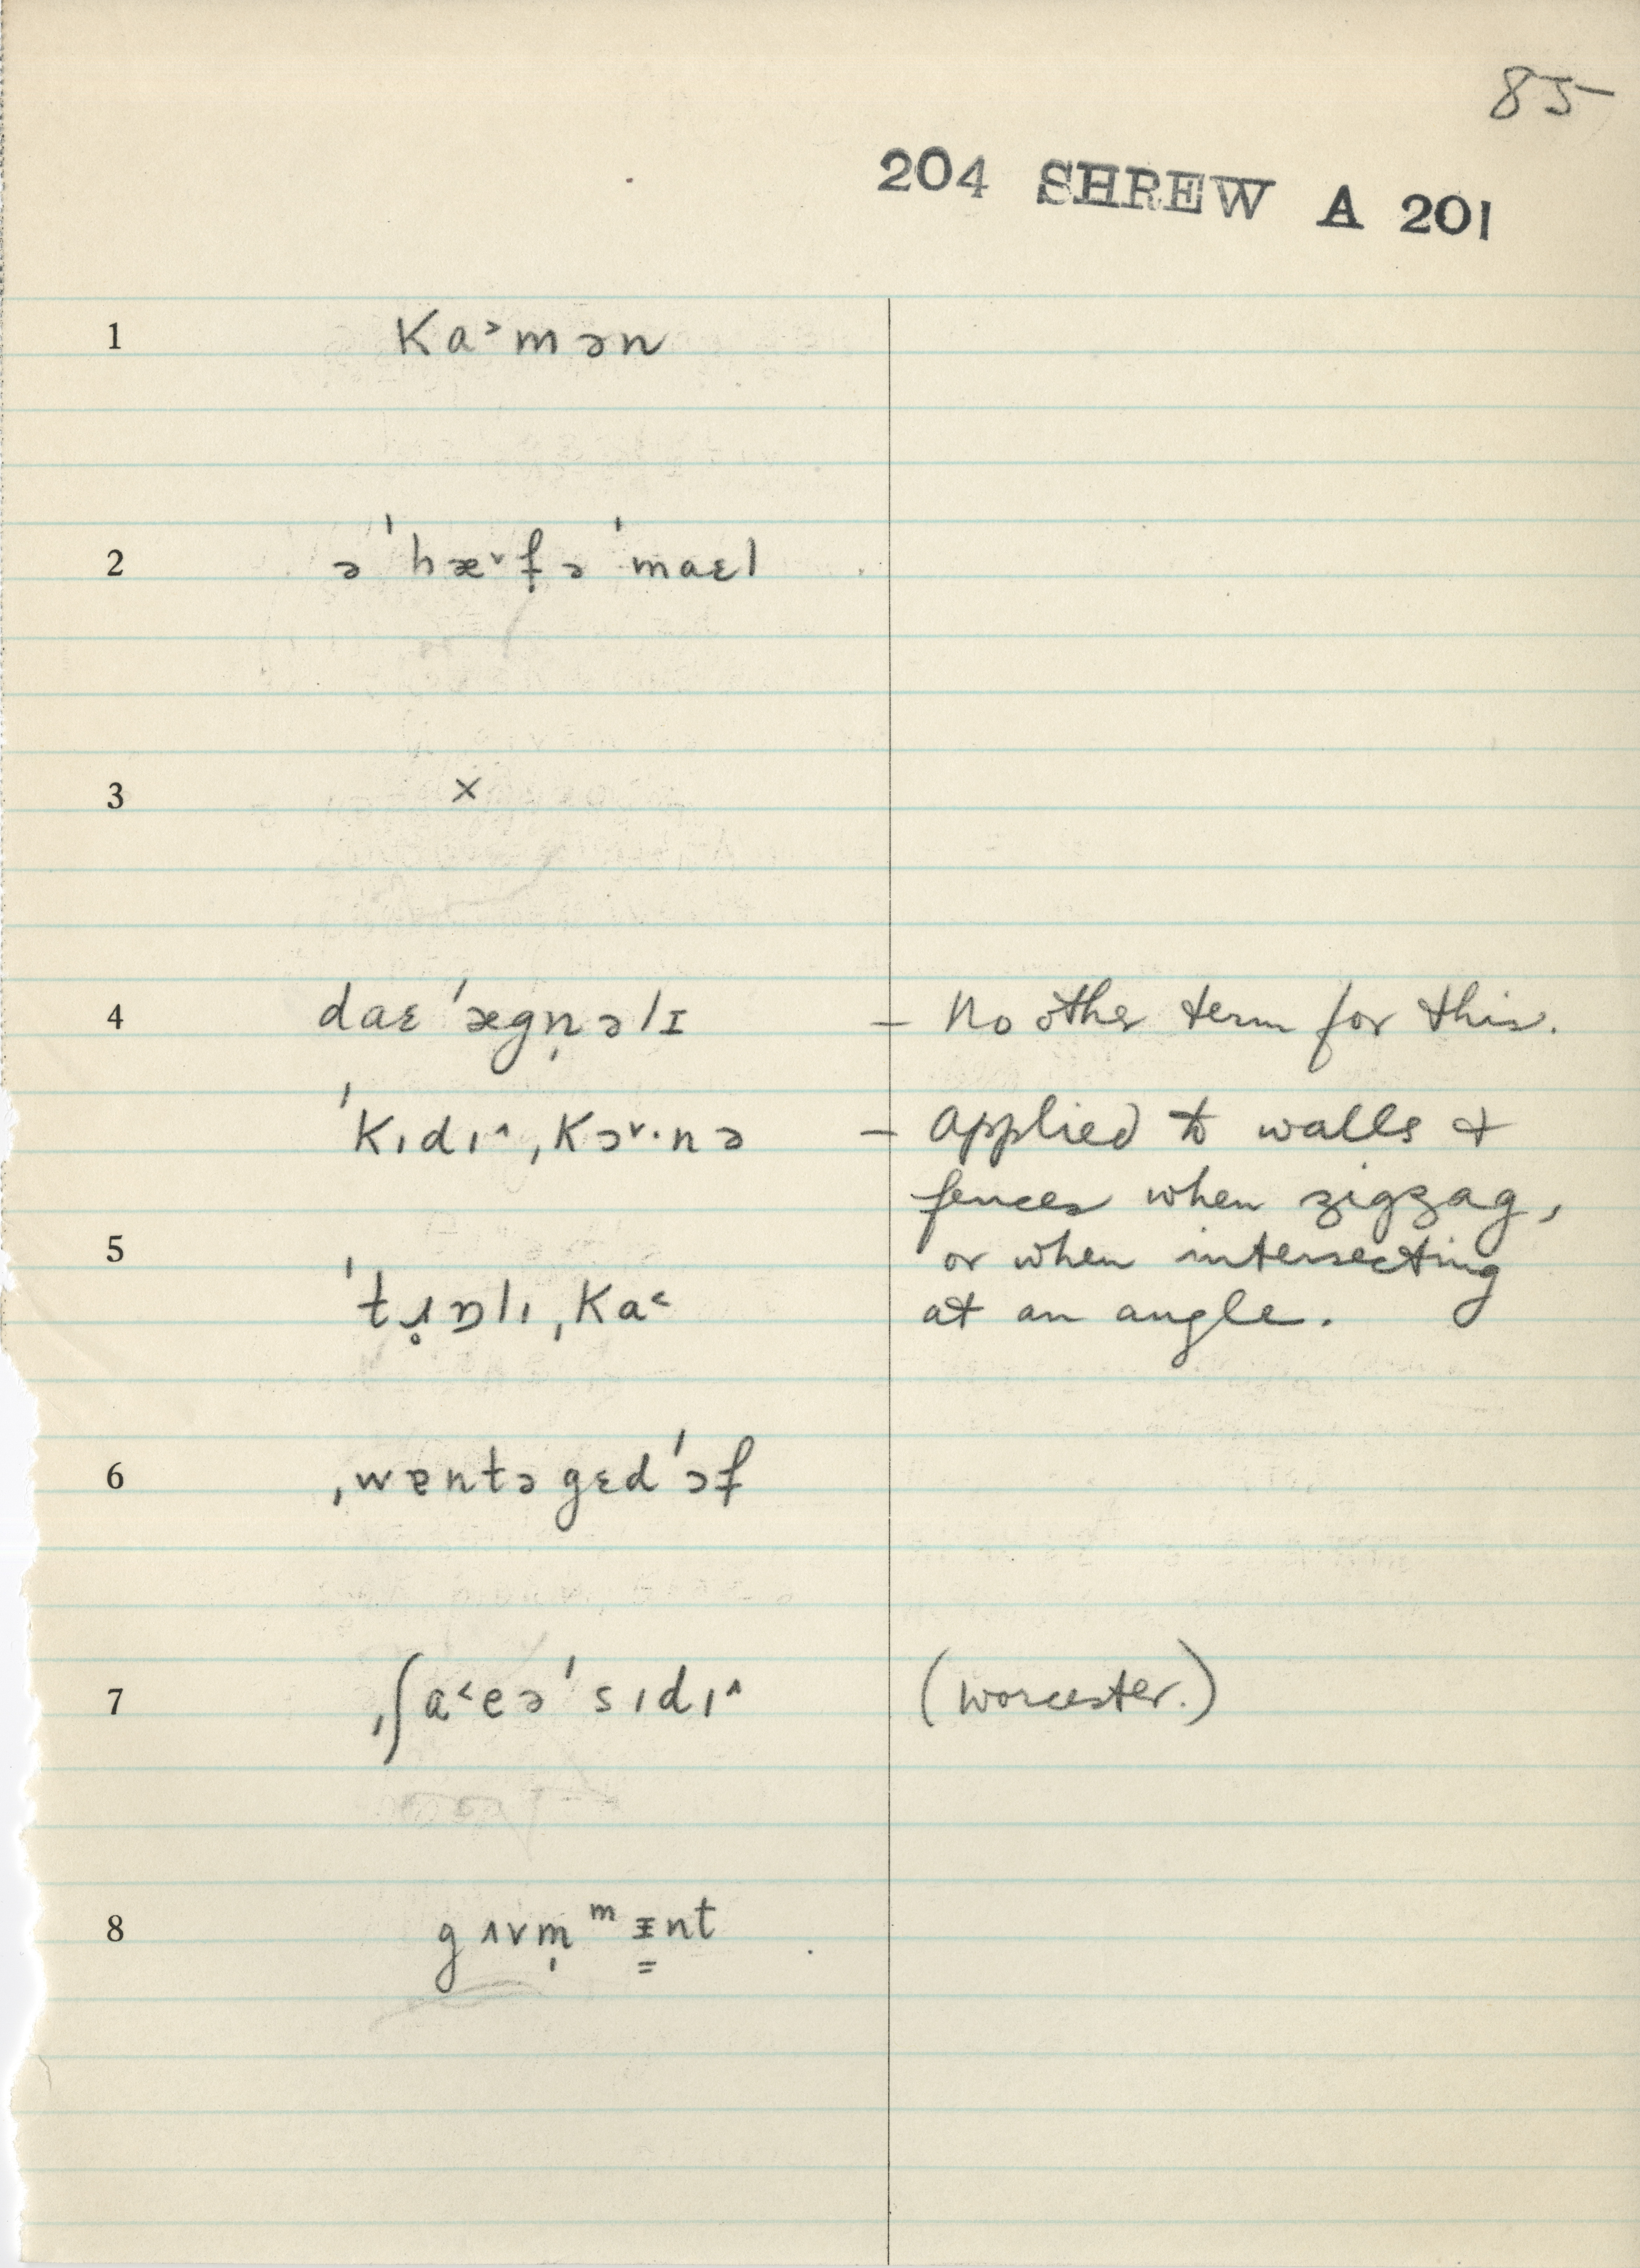 85
204 SHREW A 201
1 Ka˃mən
2 ə ˈhæ˅f̩ə ˈmaɛl
3 ×
4 daɛˈægn̩əlɪ – No other term for this.
ˈKıdı˄ˌKɔ˅·nə – applied to walls &
fences when zigzag,
5 or when intersecting
ˈtɹ̥ɒlıˌKa˂ at an angle.
6 ˌwɐntə gɛdˈɔf
7 ˌʃa˂eəˈsıdı˄ (Worcester.)
8 gʌvm̩ᵐɪ̳nt